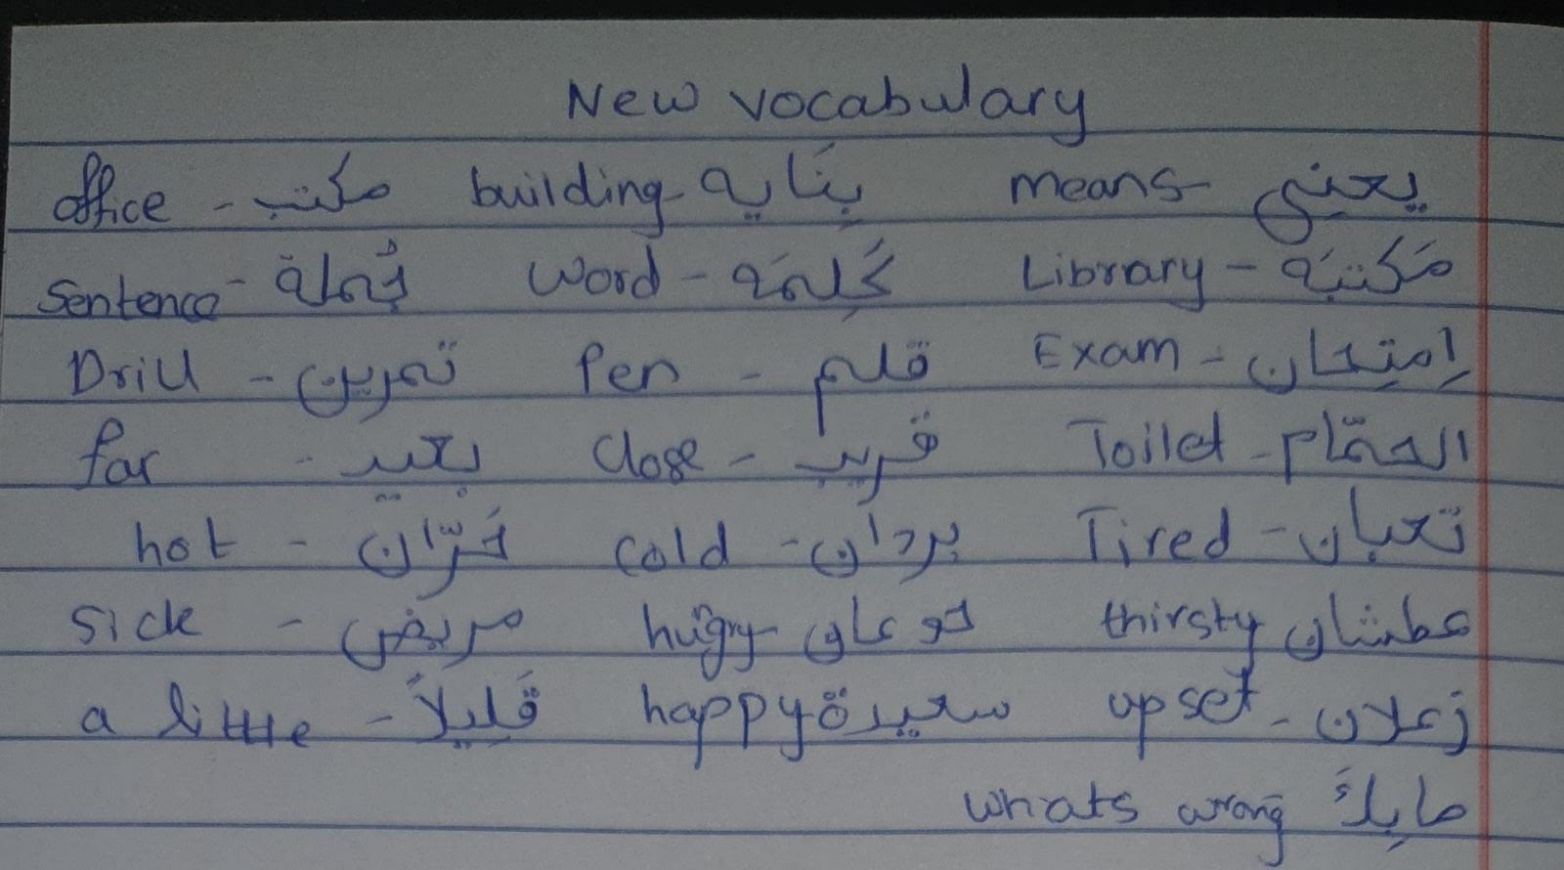 New vocabulary
office - مكتب building - بنَايه means - يعني
Sentence - جُملة Word - كَلِمَه Library - مَكتبَه
Drill - تمرين Pen - قلم Exam - اِمتِحان
far - بعيد Close - قريب Toilet - الحمّام
hot - حَرّان cold - بردان Tired - تعبان
sick - مريض hugry - جوعان thirsty عطشان
a little - قَليلاً happy سعيدة upset - زعلان
whats wrong مابِكَ